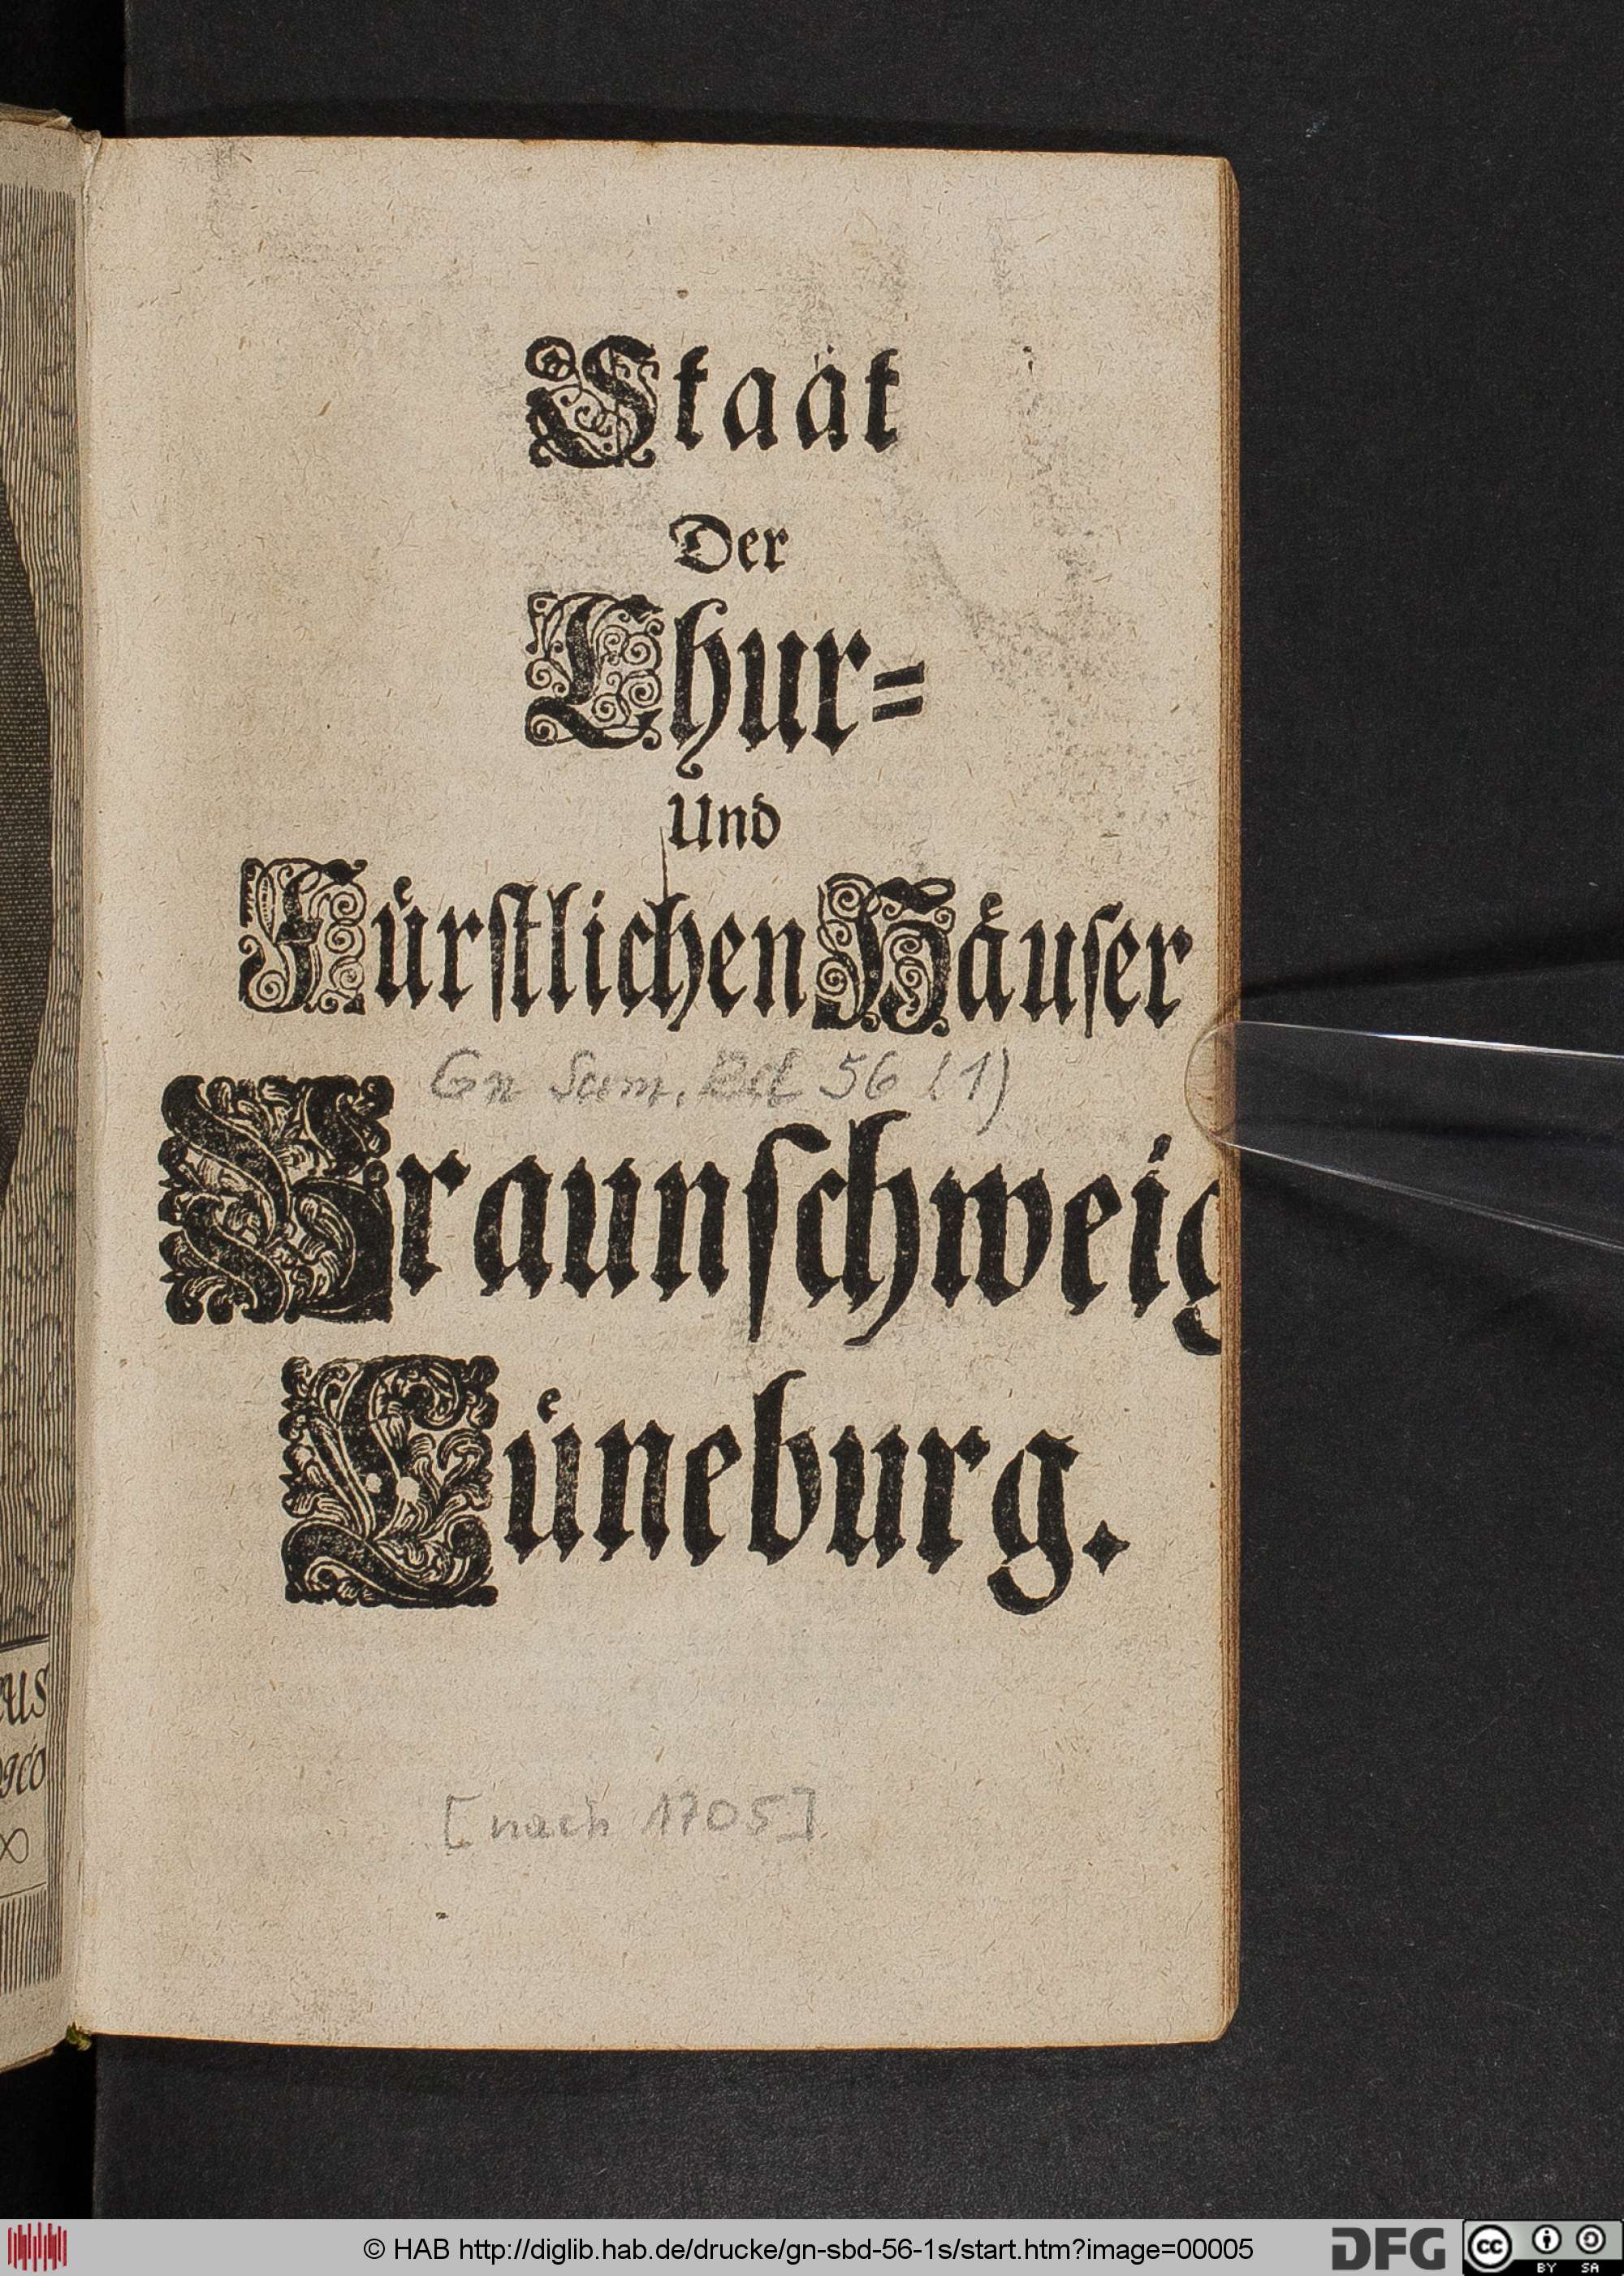 Staat
Der
Chur=
Und
Fuͤrstlichen Haͤuser
Gn Sam. Bd 56 (1)
Braunschweig
Luͤneburg.
[nach 1705]
© HAB http://diglib.hab.de/drucke/gn-sbd-56-1s/start.htm?image=00005
DFG
cc
BY SA